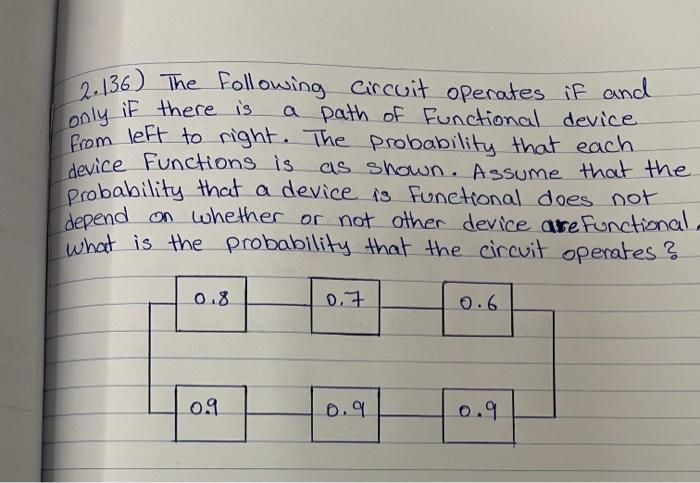 2.136) The Following circuit operates if and
only if there is a path of Functional device
From left to right. The probability that each
device Functions is as shown. Assume that the
Probability that a device is functional does not
depend on whether or not other device are Functional.
what is the probability that the circuit operates?
0.8 0.7 0.6
0.9 0.9 0.9